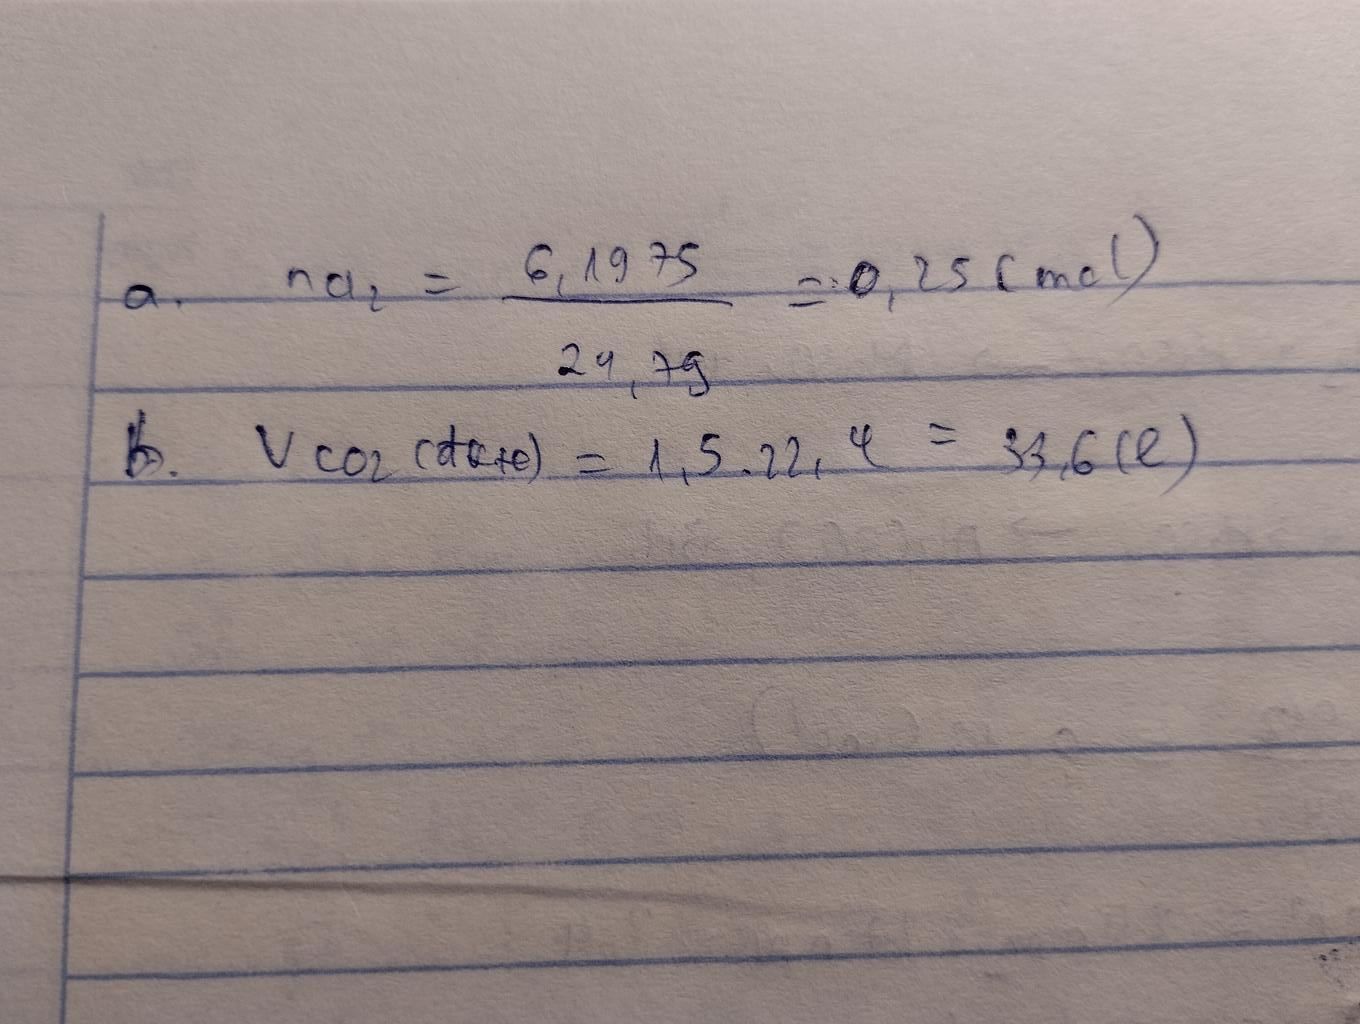 a. nCl₂ = 6,1975 / 24,79 = 0,25 (mol)
b. VCO₂ (đktc) = 1,5 . 22,4 = 33,6 (l)